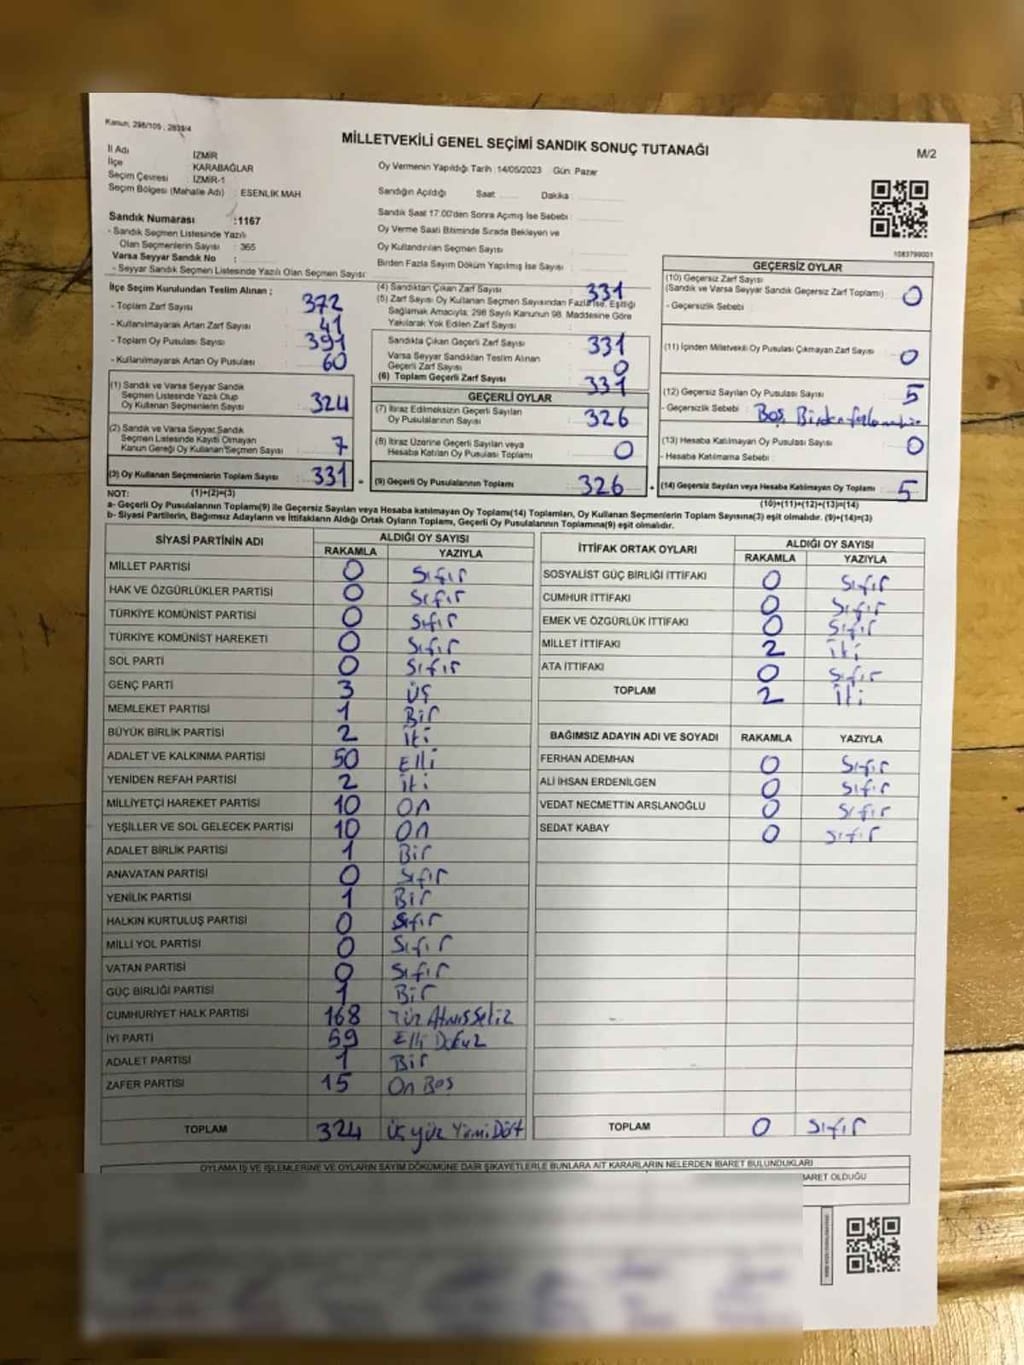 Kanun; 298/105 , 2839/4
MİLLETVEKİLİ GENEL SEÇİMİ SANDIK SONUÇ TUTANAĞI
M/2
İl Adı İZMİR
İlçe KARABAĞLAR
Seçim Çevresi : İZMİR-1
Seçim Bölgesi (Mahalle Adı) : ESENLİK MAH
Sandık Numarası :1167
- Sandık Seçmen Listesinde Yazılı
Olan Seçmenlerin Sayısı : 365
Varsa Seyyar Sandık No :
- Seyyar Sandık Seçmen Listesinde Yazılı Olan Seçmen Sayısı
Oy Vermenin Yapıldığı Tarih :14/05/2023 Gün: Pazar
Sandığın Açıldığı Saat Dakika
Sandık Saat 17.00'den Sonra Açılmış İse Sebebi
Oy Verme Saati Bitiminde Sırada Bekleyen ve
Oy Kullandırılan Seçmen Sayısı
Birden Fazla Sayım Döküm Yapılmış İse Sayısı
1083799001
İlçe Seçim Kurulundan Teslim Alınan ;
- Toplam Zarf Sayısı 372
- Kullanılmayarak Artan Zarf Sayısı 41
- Toplam Oy Pusulası Sayısı 391
- Kullanılmayarak Artan Oy Pusulası 60
(1) Sandık ve Varsa Seyyar Sandık
Seçmen Listesinde Yazılı Olup
Oy Kullanan Seçmenlerin Sayısı 324
(2) Sandık ve Varsa Seyyar Sandık
Seçmen Listesinde Kayıtlı Olmayan
Kanun Gereği Oy Kullanan Seçmen Sayısı 7
(3) Oy Kullanan Seçmenlerin Toplam Sayısı 331
(1)+(2)=(3)
(4) Sandıktan Çıkan Zarf Sayısı 331
(5) Zarf Sayısı Oy Kullanan Seçmen Sayısından Fazla İse, Eşitliği
Sağlamak Amacıyla; 298 Sayılı Kanunun 98. Maddesine Göre
Yakılarak Yok Edilen Zarf Sayısı :
Sandıkta Çıkan Geçerli Zarf Sayısı 331
Varsa Seyyar Sandıktan Teslim Alınan
Geçerli Zarf Sayısı 0
(6) Toplam Geçerli Zarf Sayısı 331
GEÇERLİ OYLAR
(7) İtiraz Edilmeksizin Geçerli Sayılan
Oy Pusulalarının Sayısı 326
(8) İtiraz Üzerine Geçerli Sayılan veya
Hesaba Katılan Oy Pusulası Toplamı 0
(9) Geçerli Oy Pusulalarının Toplamı 326
GEÇERSİZ OYLAR
(10) Geçersiz Zarf Sayısı
(Sandık ve Varsa Seyyar Sandık Geçersiz Zarf Toplamı) 0
- Geçersizlik Sebebi :
(11) İçinden Milletvekili Oy Pusulası Çıkmayan Zarf Sayısı 0
(12) Geçersiz Sayılan Oy Pusulası Sayısı 5
- Geçersizlik Sebebi : Boş,
(13) Hesaba Katılmayan Oy Pusulası Sayısı 0
- Hesaba Katılmama Sebebi :
(14) Geçersiz Sayılan veya Hesaba Katılmayan Oy Toplamı 5
(10)+(11)+(12)+(13)=(14)
NOT:
a- Geçerli Oy Pusulalarının Toplamı(9) ile Geçersiz Sayılan veya Hesaba katılmayan Oy Toplamı(14) Toplamları, Oy Kullanan Seçmenlerin Toplam Sayısına(3) eşit olmalıdır. (9)+(14)=(3)
b- Siyasi Partilerin, Bağımsız Adayların ve İttifakların Aldığı Ortak Oyların Toplamı, Geçerli Oy Pusulalarının Toplamına(9) eşit olmalıdır.
SİYASİ PARTİNİN ADI ALDIĞI OY SAYISI
RAKAMLA YAZIYLA
MİLLET PARTİSİ 0 Sıfır
HAK VE ÖZGÜRLÜKLER PARTİSİ 0 Sıfır
TÜRKİYE KOMÜNİST PARTİSİ 0 Sıfır
TÜRKİYE KOMÜNİST HAREKETİ 0 Sıfır
SOL PARTİ 0 Sıfır
GENÇ PARTİ 3 Üç
MEMLEKET PARTİSİ 1 Bir
BÜYÜK BİRLİK PARTİSİ 2 İki
ADALET VE KALKINMA PARTİSİ 50 Elli
YENİDEN REFAH PARTİSİ 2 İki
MİLLİYETÇİ HAREKET PARTİSİ 10 On
YEŞİLLER VE SOL GELECEK PARTİSİ 10 On
ADALET BİRLİK PARTİSİ 1 Bir
ANAVATAN PARTİSİ 0 Sıfır
YENİLİK PARTİSİ 1 Bir
HALKIN KURTULUŞ PARTİSİ 0 Sıfır
MİLLİ YOL PARTİSİ 0 Sıfır
VATAN PARTİSİ 0 Sıfır
GÜÇ BİRLİĞİ PARTİSİ 1 Bir
CUMHURİYET HALK PARTİSİ 168 Yüz Atmış Sekiz
İYİ PARTİ 59 Elli Dokuz
ADALET PARTİSİ 1 Bir
ZAFER PARTİSİ 15 On Beş
TOPLAM 324 Üç yüz Yirmi Dört
İTTİFAK ORTAK OYLARI ALDIĞI OY SAYISI
RAKAMLA YAZIYLA
SOSYALİST GÜÇ BİRLİĞİ İTTİFAKI 0 Sıfır
CUMHUR İTTİFAKI 0 Sıfır
EMEK VE ÖZGÜRLÜK İTTİFAKI 0 Sıfır
MİLLET İTTİFAKI 2 İki
ATA İTTİFAKI 0 Sıfır
TOPLAM 2 İki
BAĞIMSIZ ADAYIN ADI VE SOYADI RAKAMLA YAZIYLA
FERHAN ADEMHAN 0 Sıfır
ALİ İHSAN ERDENİLGEN 0 Sıfır
VEDAT NECMETTİN ARSLANOĞLU 0 Sıfır
SEDAT KABAY 0 Sıfır
TOPLAM 0 Sıfır
OYLAMA İŞ VE İŞLEMLERİNE VE OYLARIN SAYIM DÖKÜMÜNE DAİR ŞİKAYETLERLE BUNLARA AİT KARARLARIN NELERDEN İBARET BULUNDUKLARI
İBARET OLDUĞU